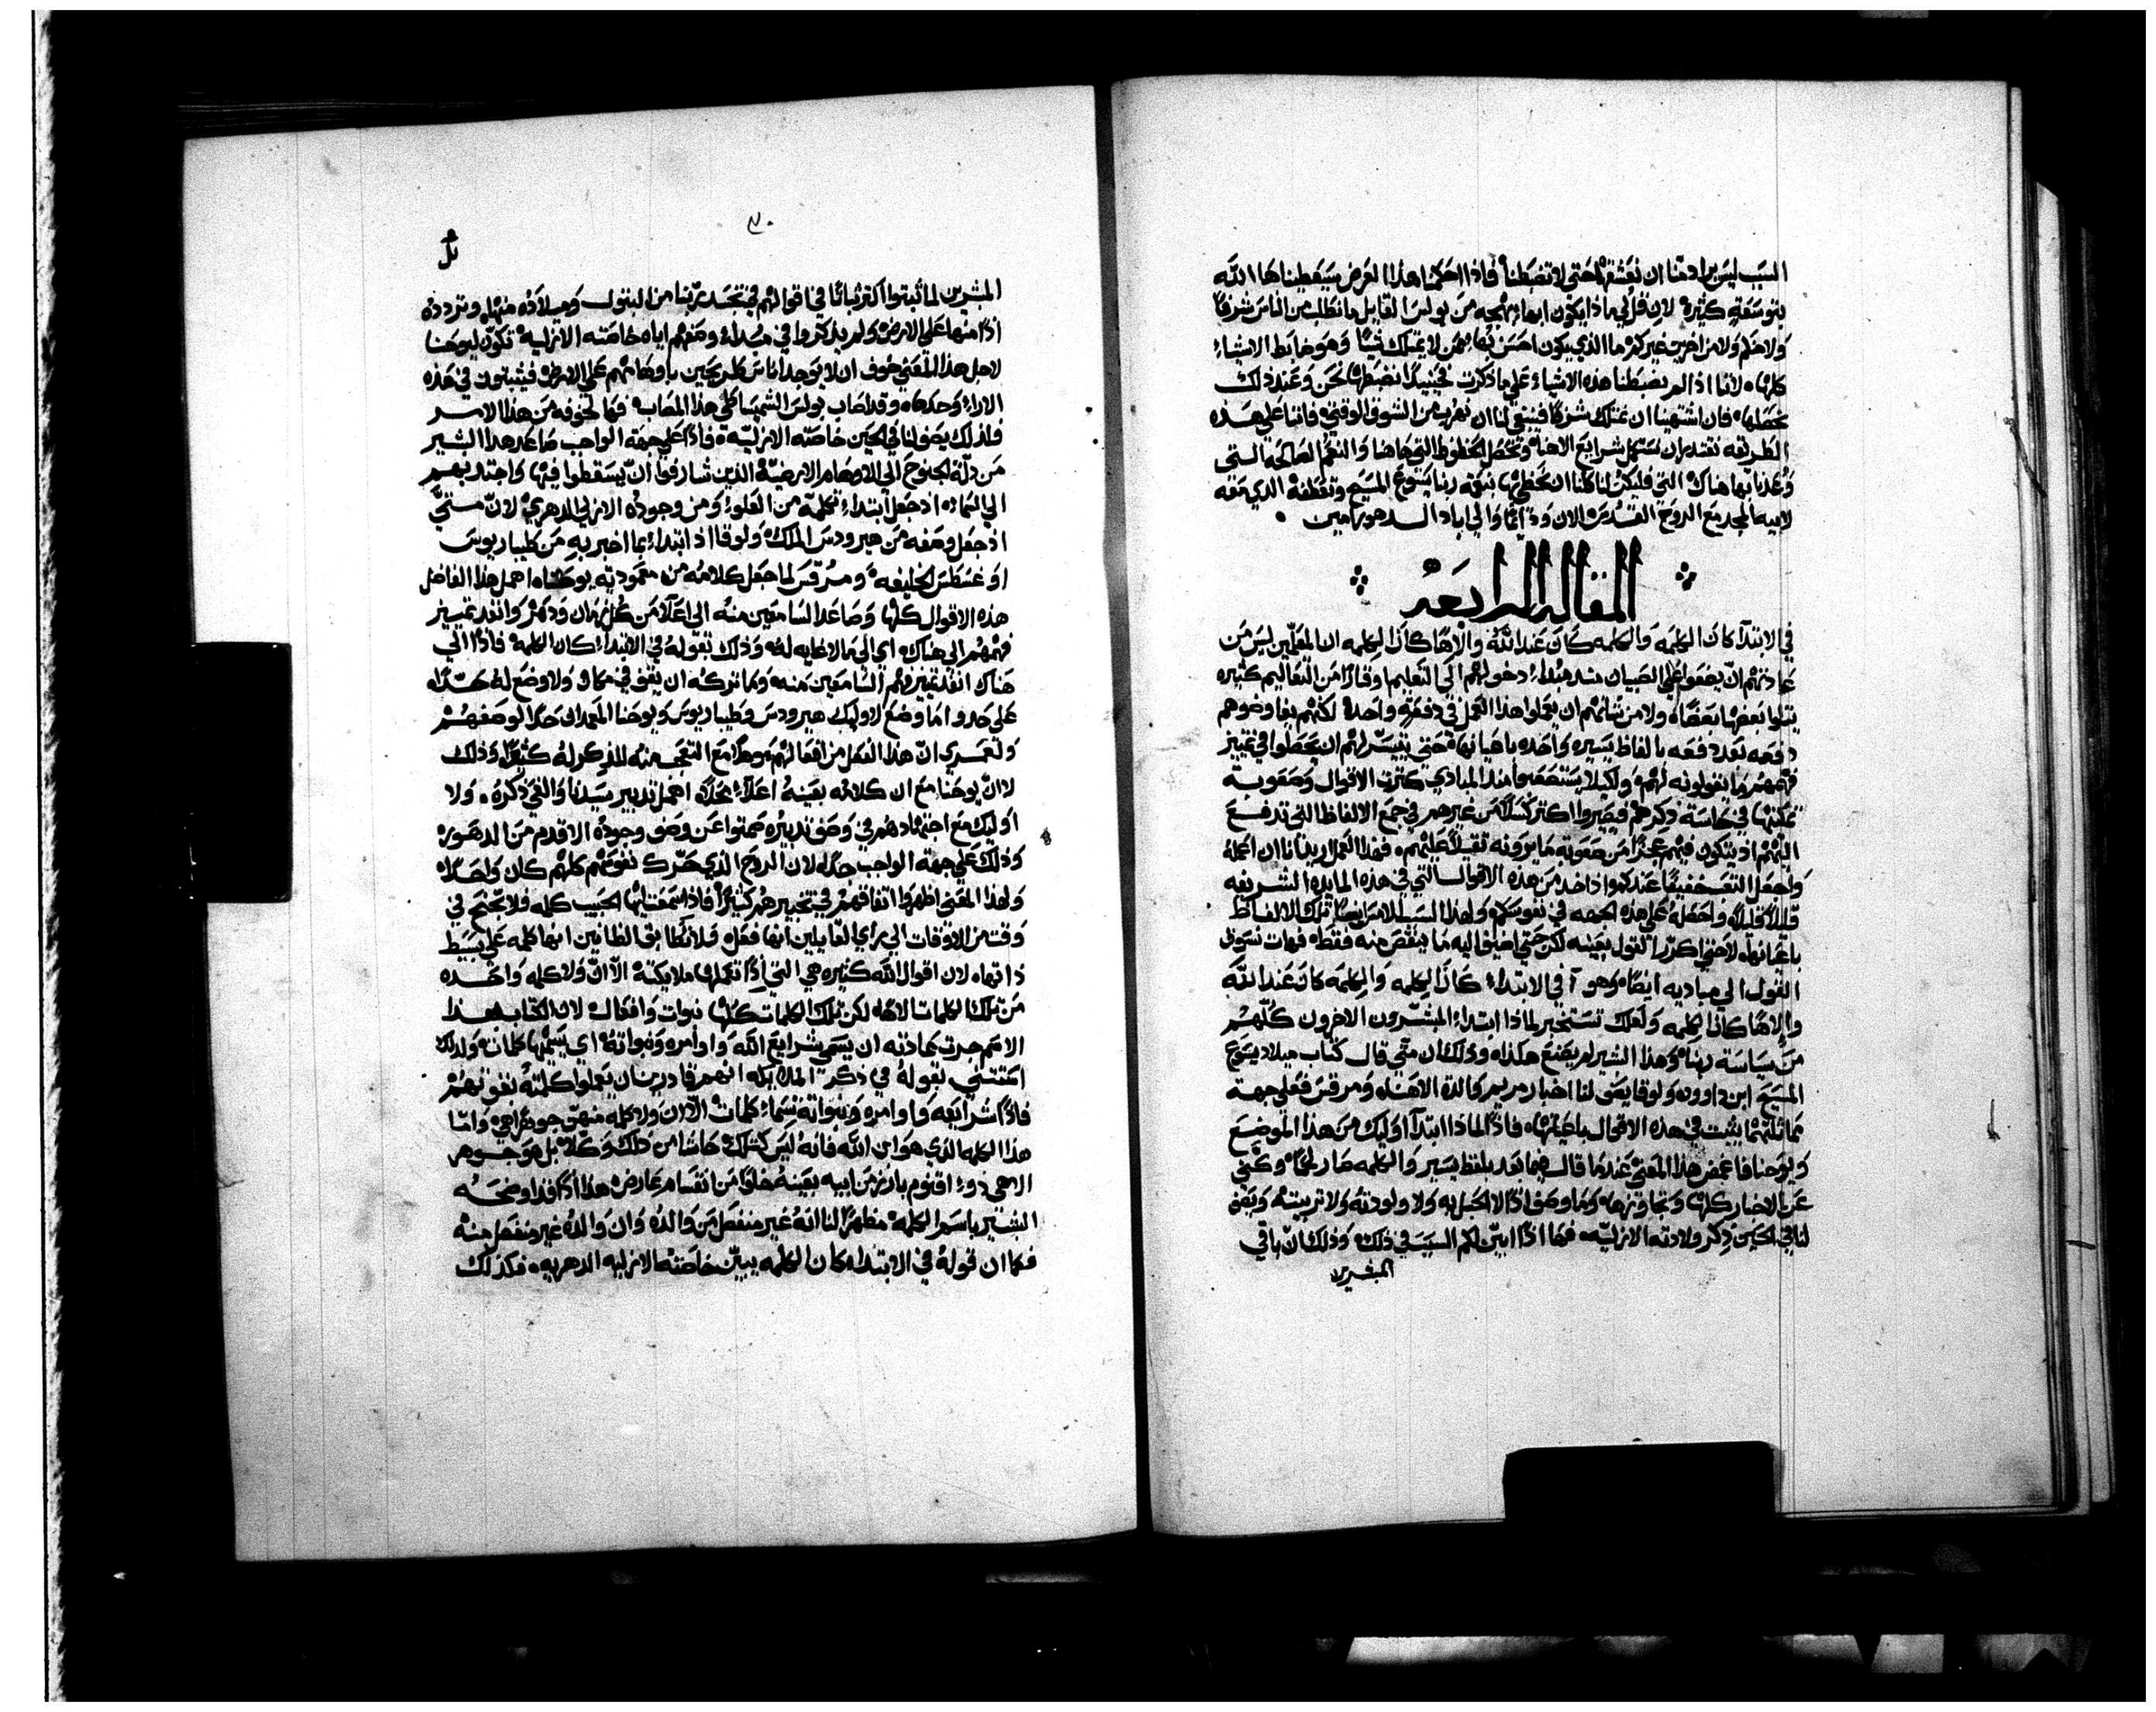 السبب ليس يرادفنا ان نعشقها حتى لا تضبطنا فاذا احكمنا هذا الغرض سيعطيناها الله
بتوسعة كثيرة لان قل لي ماذا يكون ابها بهجه من بولس القايل ما نطلب من الناس شرفًا
ولا منكم ولا من اخرين غيركم ما الذي يكون احسن بها ممن لا يمتلك شيًا وهو ضابط الاشياء
كلها لاننا اذا لم تضبطنا هذه الاشياء على ما ذكرت فحينيدًا نضبطها نحن وعند ذلك
نحصلها فان اشتهينا ان نمتلك شرفًا فينبغي لنا ان نهرب من الشرف الوقتي فاننا على هذه
الطريقه نقتدر ان نستكمل شرايع الاهنا ونحصل الحظوظ التي هاهنا والنعم الصالحه التي
وعدنا بها هناك التي فليكن لنا كلنا ان نحظى بها بنعمة ربنا يسوع المسيح وتعطفه الذي معه
لابيه المجد مع الروح القدس الان ودايمًا والى اباد الدهور امين
المقاله الرابعه
في الابتدا كان الكلمه والكلمه كان عند الله والاهًا كان الكلمه ان المعلمين ليس من
عادتهم ان يضعوا على الصبيان منذ مبدا دخولهم الى التعليم اوقارًا من التعاليم كثيره
يتلوا بعضها بعضًا ولا من شانهم ان يعملوا هذا العمل في دفعةٍ واحدة لكنهم يفاوضوهم
دفعه بعد دفعه بالفاظ يسيره واحده باعيانها حتى يتيسر لهم ان يحصلوا في تمييز
فهمهم ما يقولونه لهم ولكيلا يستصعبوا منذ المبادي كثرت الاقوال وصعوبة
تمكنها في حاسة ذكرهم فيصيروا اكثر كسلًا من غيرهم في جمع الالفاظ التي تدفع
اليهم اذ يتكون فيهم عجزًا من صعوبه ما يرونه ثقيلًا عليهم فهذا العمل اريد انا ان اعمله
واجعل التعب خفيفًا عندكم واذا اخد من هذه الاقوال التي في هذه المايده الشريفه
قليلًا قليلًا واجعله على هذه الجهه في نفوسكم ولهذا السبب الامس ايضًا تلك الالفاظ
باعيانها لاحتى اكرر القول بعينه لكن حتى اضيف اليه ما ينقص منه فقط فهات نسوق
القول الى مباديه ايضًا وهو آ في الابتداء كان الكلمه والكلمه كان عند الله
والاهًا كان الكلمه ولعلك تستخبر لماذا ابتداء المبشرون الاخرون كلهم
من سياسة ربنا وهذا البشير لم يصنع هكذا وذلك ان متى قال كتاب ميلاد يسوع
المسيح ابن داوود ولوقا يصف لنا اخبار مريم والدة الالاه ومرقس فعلى جهة
مماثلتهما يثبت في هذه الاقوال باعيانها فاذًا لماذا ابتدآ اوليك من هذا الموضع
ويوحنا فاغمض هذا المعنى عندما قال فيما بعد بلفظ يسير والكلمه صار لحمًا وكنى
عن الاخبار كلها وتجاوزها وما وصف اذًا لا الحبل به ولا ولودته ولا تربيته ويصف
لنا في الحين ذكر ولادته الازليه فها اذًا ابين لكم السبب في ذلك وذلك ان باقي
المبشرين
٣٠
المبشرين لما ثبتوا اكثر ثباتًا في اقوالهم في تجسد ربنا من البتول وميلاده منها وتردده
اذًا منها على الارض ولم يذكروا في مبداء وصفهم اياه خاصته الازلية تكون ليوحنا
لاجل هذا المعنى خوف ان لا يوجد اناس طريحين باوهامهم على الارض فيثبتون في هذه
الاراء وحدها وقد اصاب بولس الشمشاطي هذا المصاب فها لخوفه من هذا الامر
فلذلك يصف لنا في الحين خاصته الازلية فاذًا على جهة الواجب صاعد هذا البشير
من زلة الجنوح الى الاوهام الارضية الذين شارفوا ان يسقطوا فيها واجتذبهم
الى السماء اذ جعل ابتداء الكلمة من العلو ومن وجوده الازلي الدهري لان متى
اذ جعل وصفه من هيرودس الملك ولوقا اذ ابتداء بما اخبر به من طيباريوس
اوغسطس الخليفه ومرقس لما جعل كلامه من معمودية يوحنا اهمل هذا الفاضل
هذه الاقوال كلها وصاعد السامعين منه الى اعلا من كل زمان ودهر وانفذ تمييز
فهمهم الى هناك اي الى ما لا غايه له وذلك بقوله في الابتداء كان الكلمة فاذًا الى
هناك انفذ تمييز فهم السامعين منه وما تركه ان يقف في مكان ولا وضع له حدًا
على حدو اما وضع اوليك هيرودس وطيباريوس ويوحنا المعمدان حدًا لوصفهم
ولعمري ان هذا الفعل من افعالهم وهذا مع التعجب منه المذكور له كثيرًا وذلك
لا ان يوحنا مع ان كلامه بعينه اعلاء محلًا اهمل تدبير سيدنا والغي ذكره ولا
اوليك مع اجتهادهم في وصف تدبيره صمتوا عن وصف وجوده الاقدم من الدهور
وذلك على جهة الواجب جدًا لان الروح الذي حرك نفوسهم كلهم كان واحدًا
ولهذا المعنى اظهروا اتفاقهم في تخبيرهم كثيرًا فاذا سمعت ايها الحبيب كلمه فلا تجنح في
وقت من الاوقات الى راي القايلين انها فعل ولا تطابق الظانين انها كلمه على بسيط
ذاتها لان اقوال الله كثيره هي التي اذًا تعملها ملايكته الا ان ولا كلمه واحده
من تلك الكلمات الاها لكن تلك الكلمات كلها نبوات وافعال لان الكتاب هذا
الاسم جرت عادته ان يسمي شرايع الله واوامره ونبواته اي يسميها كلمات ولذلك
استثنى بقوله في ذكر الملايكه انهم قادرين ان يعملوا كلمته نفوسهم
فاذًا شرايعه واوامره ونبواته تسماء كلمات الا ان ولا كلمه منهن جوهر الهي واما
هذا الكلمه الذي هو ابن الله فانه ليس كذلك حاشا من ذلك وكلا بل هو جوهر
الهي ذو اقنوم بارز من ابيه بعينه خلوًا من انقسام عارض هذا اذًا قد اوضحه
البشير باسم الكلمة مظهرًا لنا انه غير منفصل من والده وان والده غير منفصل منه
فكما ان قوله في الابتداء كان الكلمه يبين خاصته الازليه الدهريه فكذلك